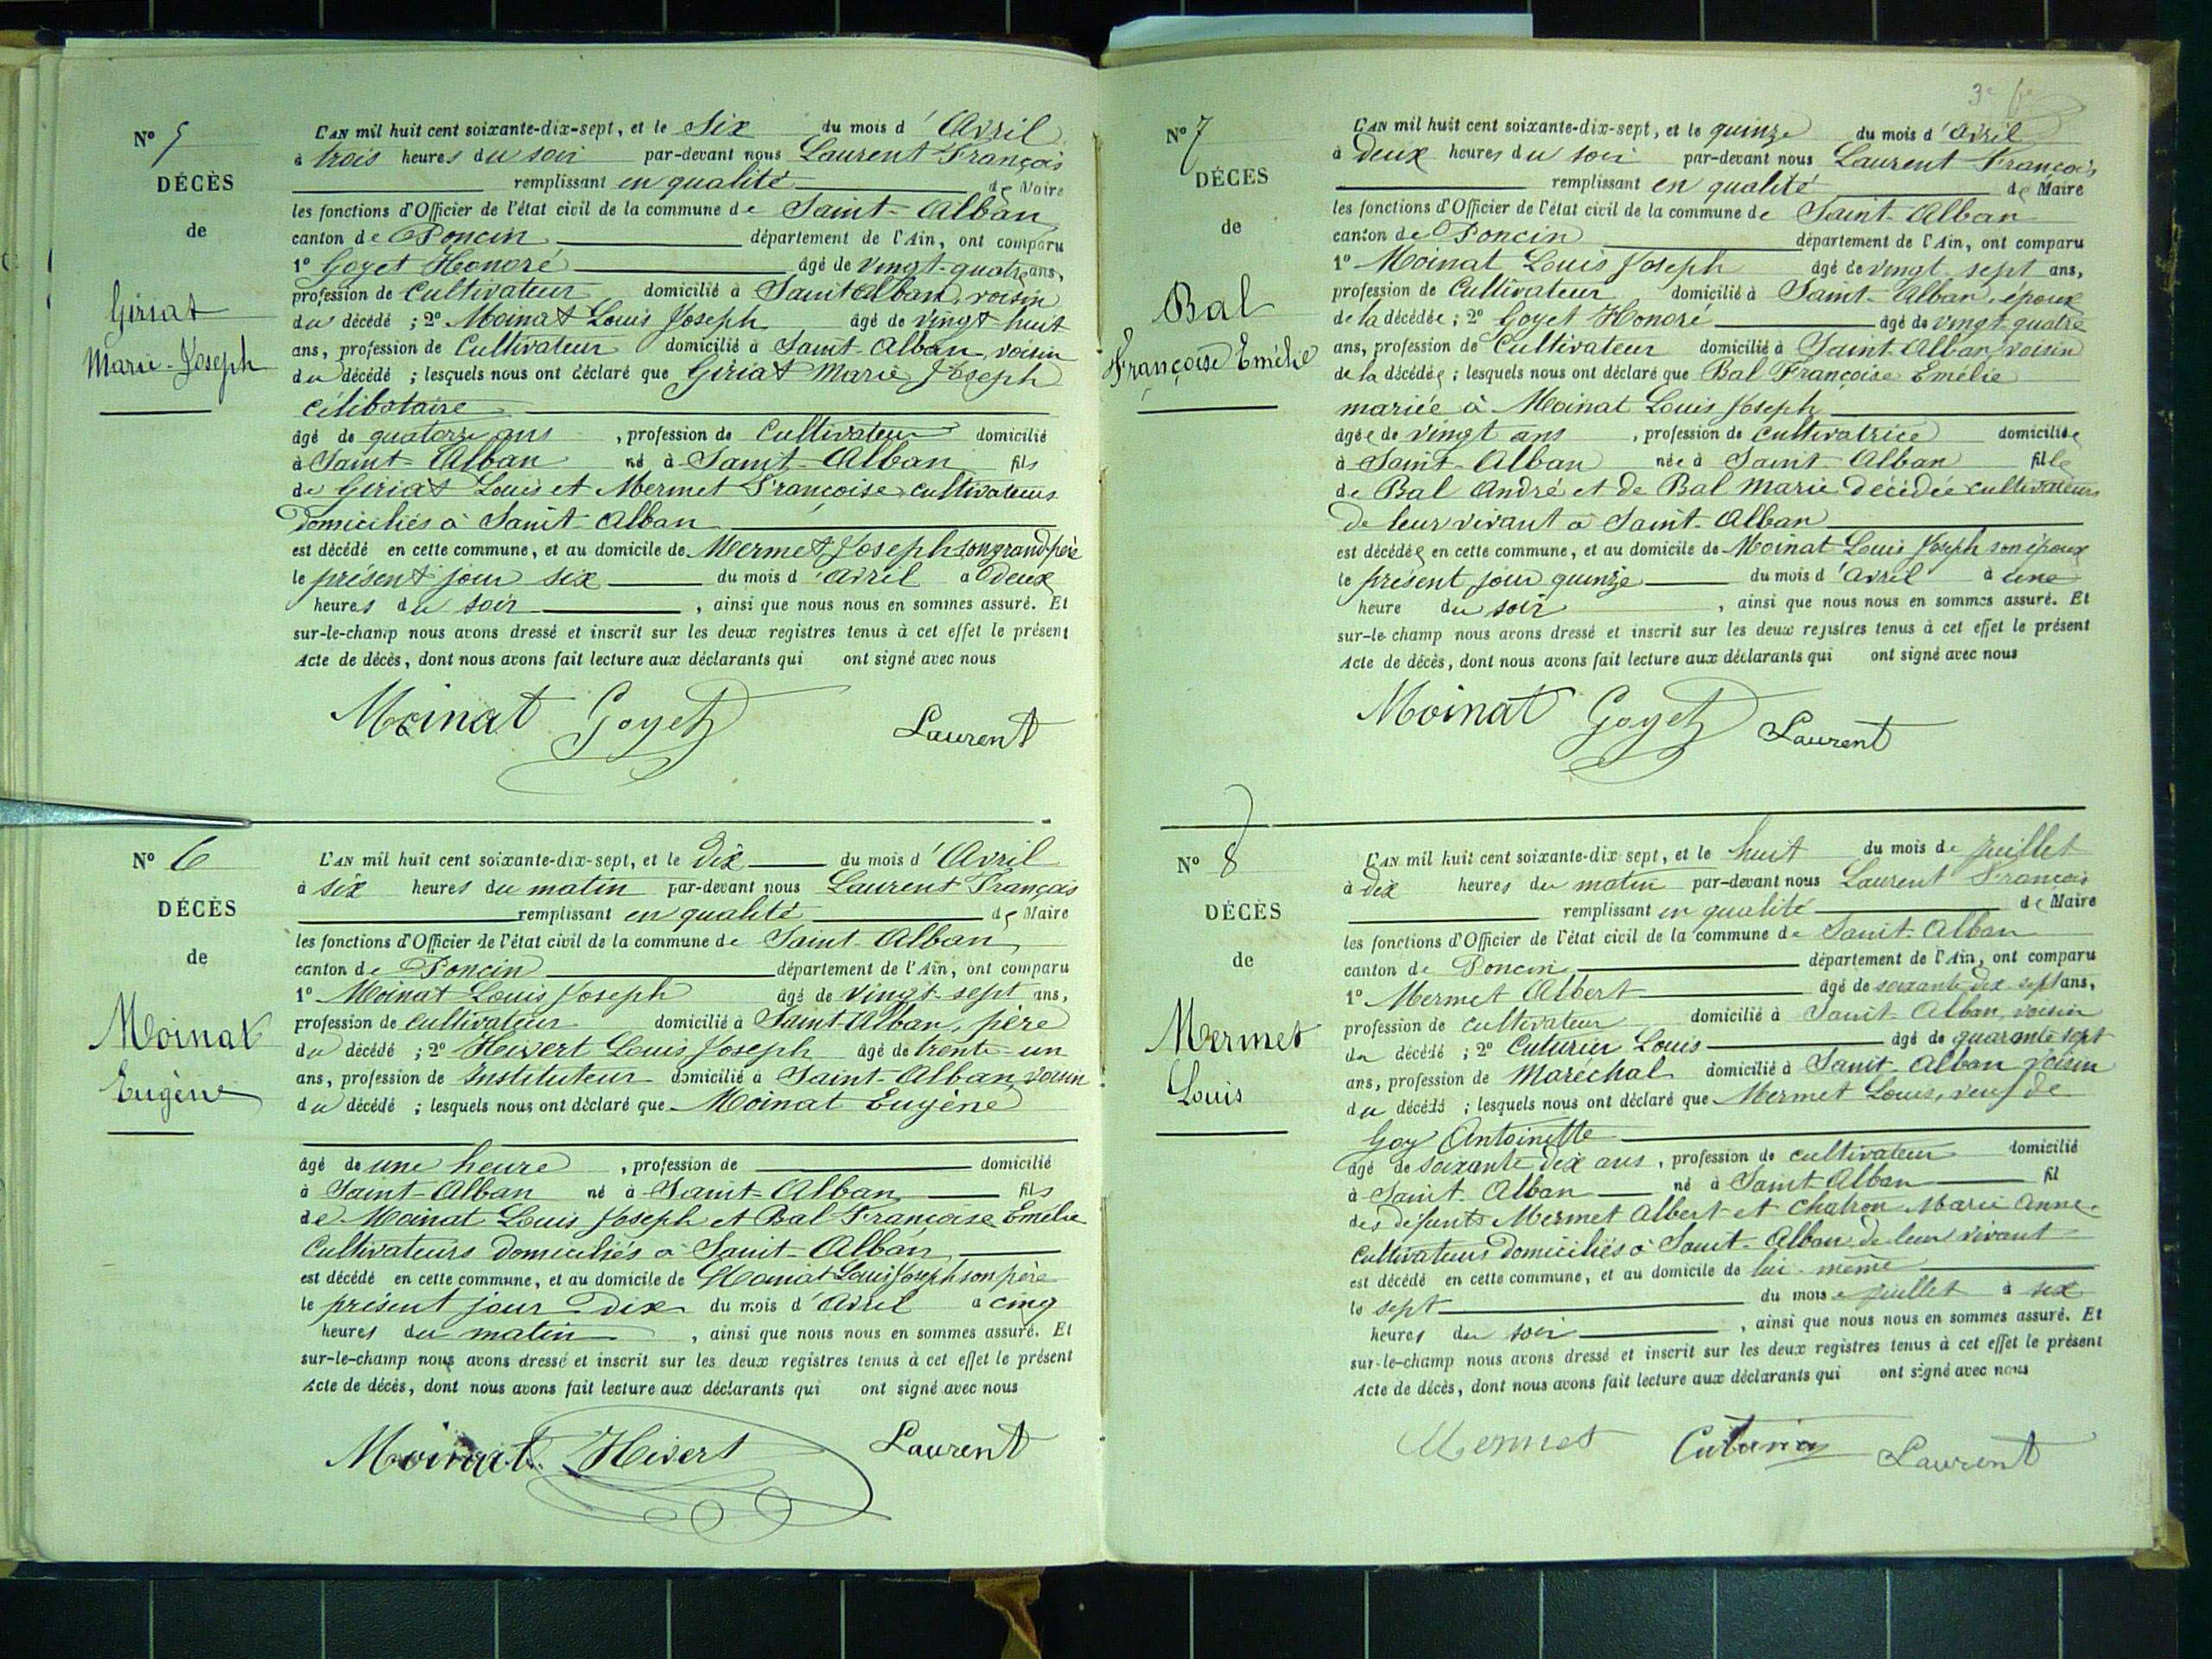 N° 5
DÉCÈS
de
Giriat
Marie-Joseph
L'AN mil huit cent soixante-dix-sept, et le Six du mois d'Avril
à trois heures du soir par-devant nous Laurent François
remplissant en qualité de Maire
les fonctions d'Officier de l'état civil de la commune de Saint-Alban
canton de Poncin département de l'Ain, ont comparu
1° Goyet Honoré âgé de vingt-quatre ans,
profession de Cultivateur domicilié à Saint Alban, voisin
du décédé ; 2° Moinat Louis Joseph âgé de vingt huit
ans, profession de Cultivateur domicilié à Saint-Alban, voisin
du décédé ; lesquels nous ont déclaré que Giriat Marie Joseph
célibataire
âgé de quatorze ans, profession de Cultivateur domicilié
à Saint-Alban né à Saint-Alban fils
de Giriat Louis et Mermet Françoise, cultivateurs
domiciliés à Saint-Alban
est décédé en cette commune, et au domicile de Mermet Joseph son grand-père
le présent jour six du mois d'avril à deux
heures du soir, ainsi que nous nous en sommes assuré. Et
sur-le-champ nous avons dressé et inscrit sur les deux registres tenus à cet effet le présent
Acte de décès, dont nous avons fait lecture aux déclarants qui ont signé avec nous
Moinat Goyet Laurent
N° 6
DÉCÈS
de
Moinat
Eugène
L'AN mil huit cent soixante-dix-sept, et le dix du mois d'Avril
à six heures du matin par-devant nous Laurent François
remplissant en qualité de Maire
les fonctions d'Officier de l'état civil de la commune de Saint-Alban
canton de Poncin département de l'Ain, ont comparu
1° Moinat Louis Joseph âgé de vingt-sept ans,
profession de cultivateur domicilié à Saint-Alban, père
du décédé ; 2° Hivert Louis Joseph âgé de trente-un
ans, profession de Instituteur domicilié à Saint-Alban, voisin
du décédé ; lesquels nous ont déclaré que Moinat Eugène
âgé de une heure, profession de domicilié
à Saint-Alban né à Saint-Alban fils
de Moinat Louis Joseph et Bal Françoise Emélie
Cultivateurs domiciliés à Saint-Alban
est décédé en cette commune, et au domicile de Moinat Louis Joseph son père
le présent jour dix du mois d'Avril à cinq
heures du matin, ainsi que nous nous en sommes assuré. Et
sur-le-champ nous avons dressé et inscrit sur les deux registres tenus à cet effet le présent
Acte de décès, dont nous avons fait lecture aux déclarants qui ont signé avec nous
Moinat Hivert Laurent
N° 7
DÉCÈS
de
Bal
Françoise Emélie
L'AN mil huit cent soixante-dix-sept, et le quinze du mois d'Avril
à deux heures du soir par-devant nous Laurent François
remplissant en qualité de Maire
les fonctions d'Officier de l'état civil de la commune de Saint-Alban
canton de Poncin département de l'Ain, ont comparu
1° Moinat Louis Joseph âgé de vingt-sept ans,
profession de Cultivateur domicilié à Saint-Alban, époux
de la décédée ; 2° Goyet Honoré âgé de vingt-quatre
ans, profession de Cultivateur domicilié à Saint-Alban, voisin
de la décédée ; lesquels nous ont déclaré que Bal Françoise Emélie
mariée à Moinat Louis Joseph
âgée de vingt ans, profession de cultivatrice domiciliée
à Saint-Alban née à Saint-Alban fille
de Bal André et de Bal Marie décédée cultivateurs
de leur vivant à Saint-Alban
est décédée en cette commune, et au domicile de Moinat Louis Joseph son époux
le présent jour quinze du mois d'Avril à une
heure du soir, ainsi que nous nous en sommes assuré. Et
sur-le-champ nous avons dressé et inscrit sur les deux registres tenus à cet effet le présent
Acte de décès, dont nous avons fait lecture aux déclarants qui ont signé avec nous
Moinat Goyet Laurent
N° 8
DÉCÈS
de
Mermet
Louis
L'AN mil huit cent soixante-dix-sept, et le huit du mois de juillet
à dix heures du matin par-devant nous Laurent François
remplissant en qualité de Maire
les fonctions d'Officier de l'état civil de la commune de Saint-Alban
canton de Poncin département de l'Ain, ont comparu
1° Mermet Albert âgé de soixante dix sept ans,
profession de cultivateur domicilié à Saint-Alban, voisin
du décédé ; 2° Cuturier Louis âgé de quarante sept
ans, profession de Maréchal domicilié à Saint-Alban voisin
du décédé ; lesquels nous ont déclaré que Mermet Louis, veuf de
Goy Antoinette
âgé de soixante dix ans, profession de cultivateur domicilié
à Saint-Alban né à Saint-Alban fil
des défunts Mermet Albert et Chatron Marie Anne
cultivateurs domiciliés à Saint-Alban de leur vivant
est décédé en cette commune, et au domicile de lui-même
le sept du mois juillet à six
heures du soir, ainsi que nous nous en sommes assuré. Et
sur-le-champ nous avons dressé et inscrit sur les deux registres tenus à cet effet le présent
Acte de décès, dont nous avons fait lecture aux déclarants qui ont signé avec nous
Mermet Laurent